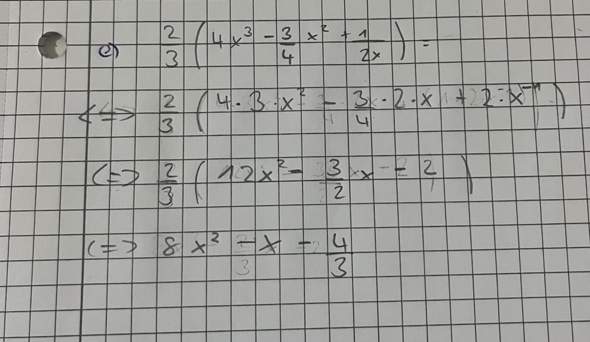 e) 2/3 ( 4x³ - 3/4 x² + 1/2x ) =
<=> 2/3 ( 4 · 3 · x² - 3/4 · 2 · x + 2 · x⁻¹ )
<=> 2/3 ( 12x² - 3/2 x - 2 )
<=> 8x² - x - 4/3